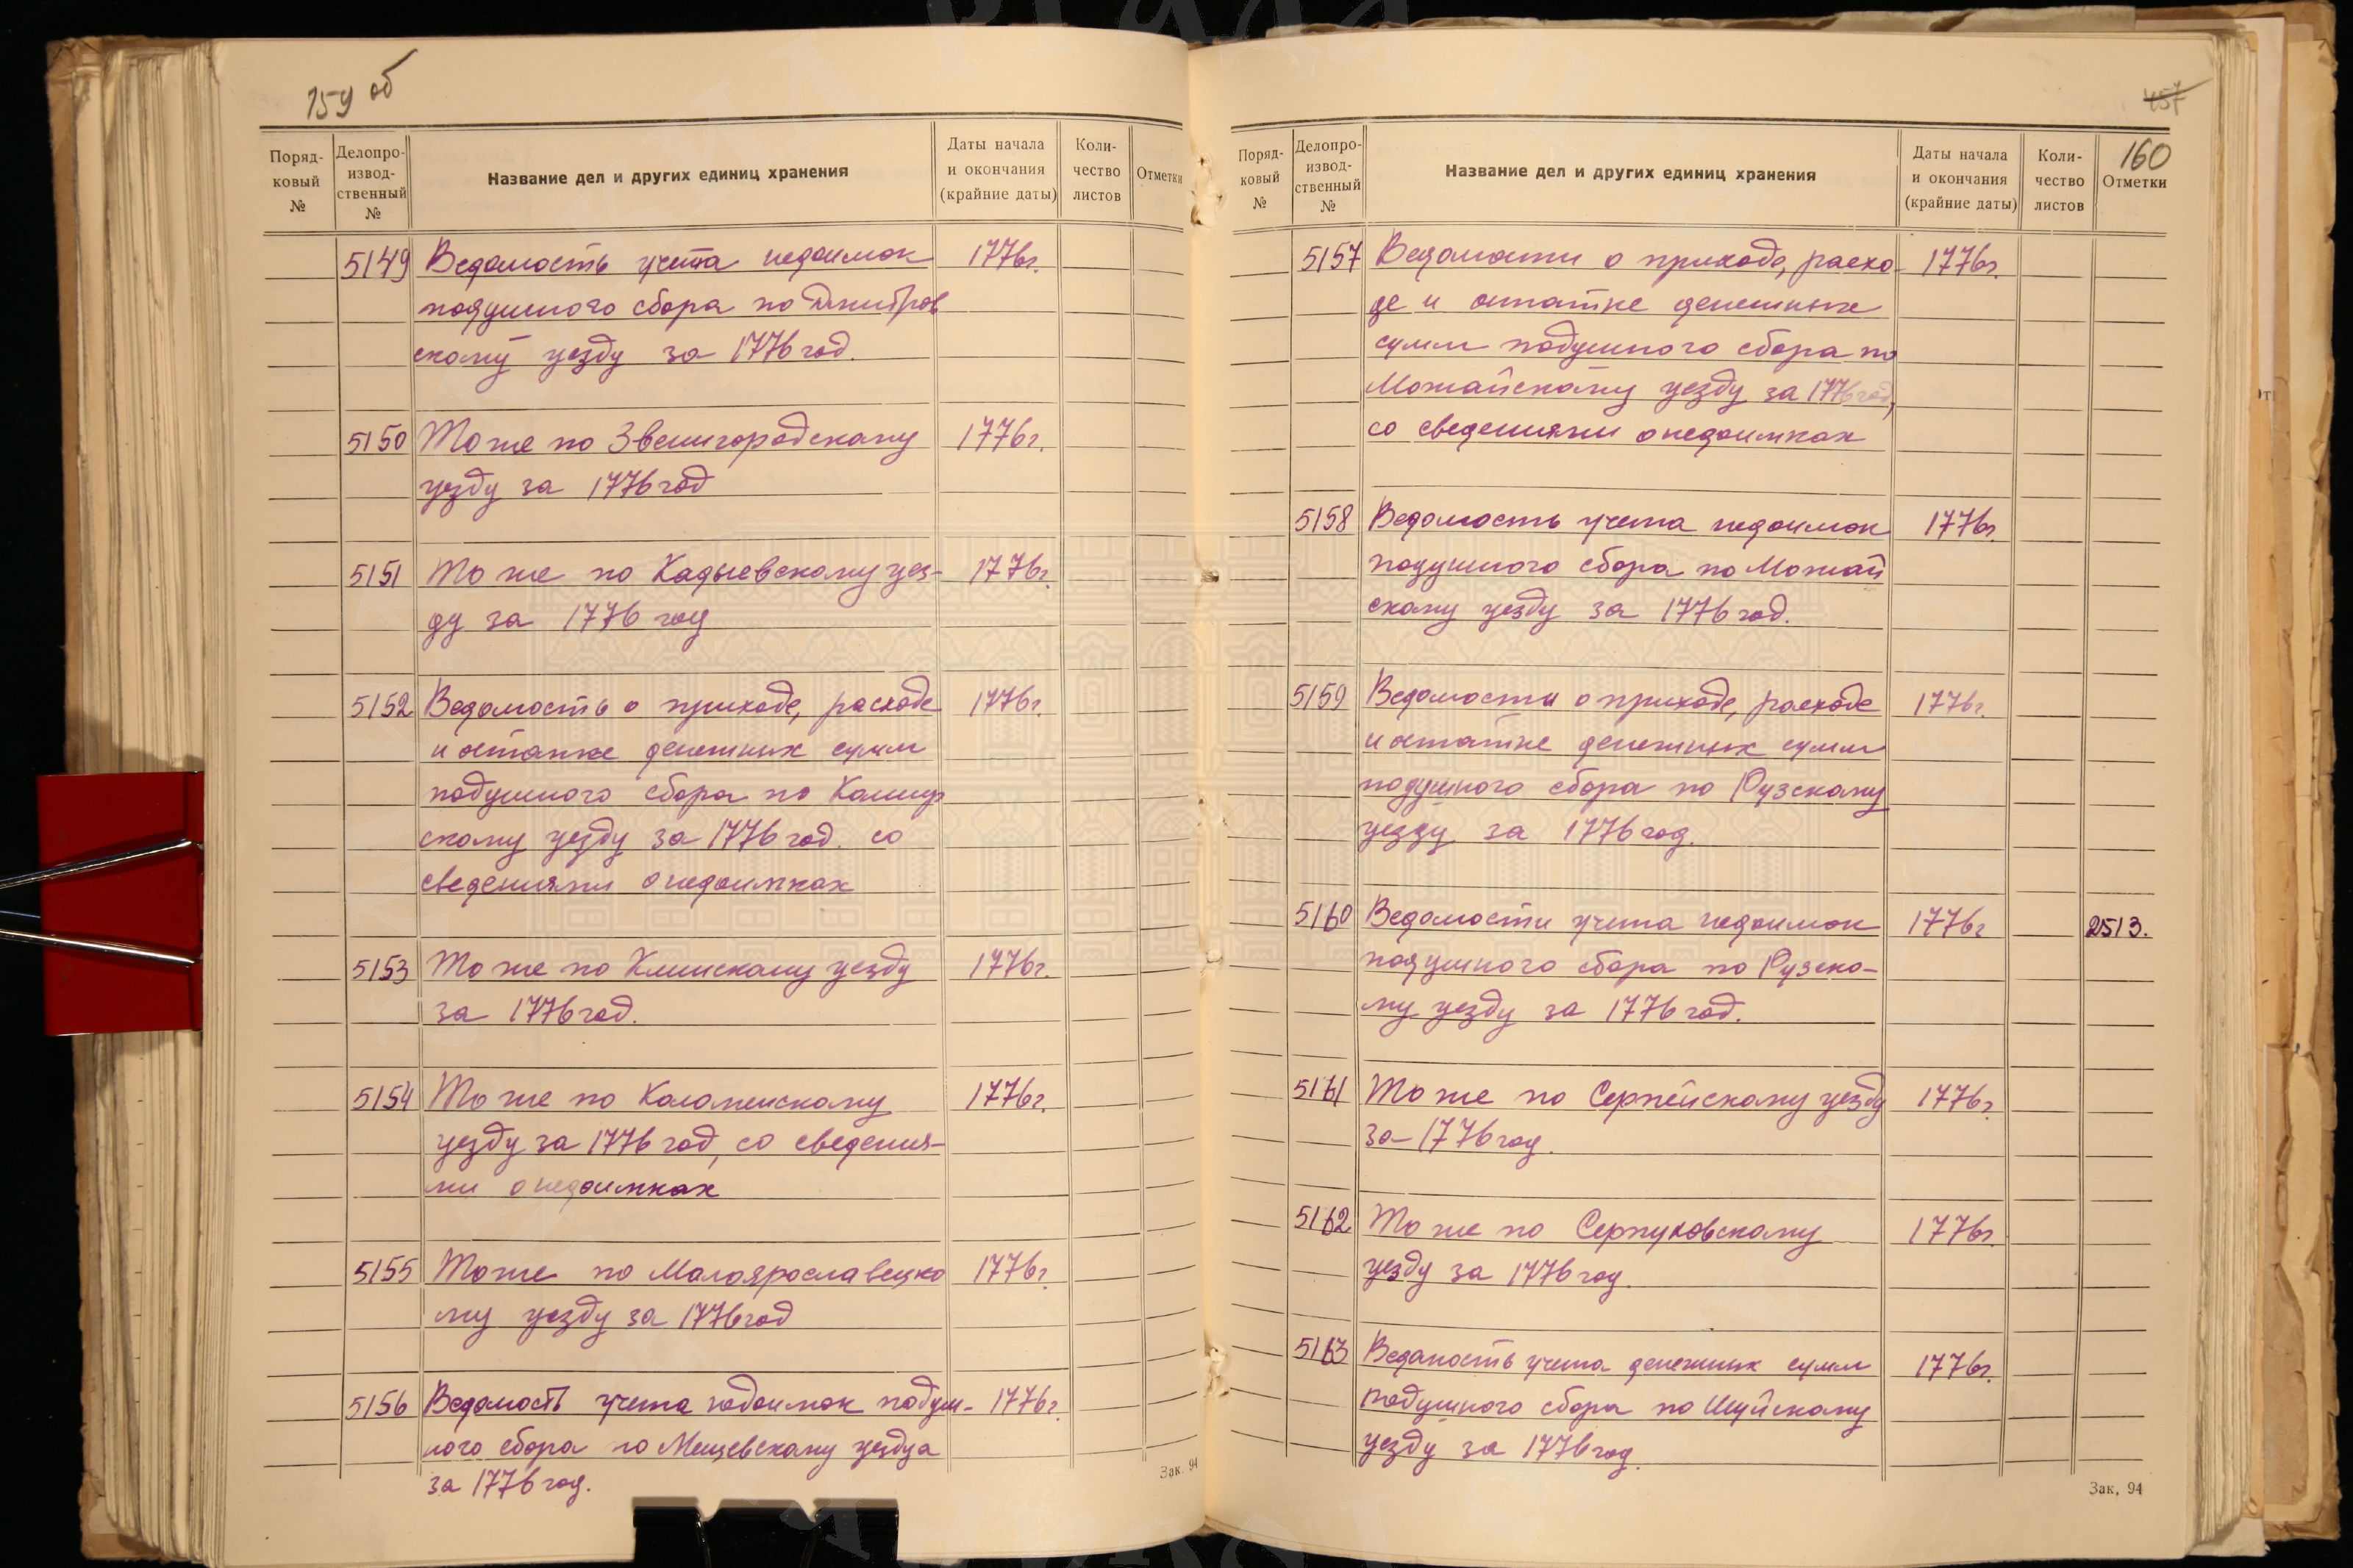 159 об
Поряд-
ковый
№
Делопро-
извод-
ственный
№
Название дел и других единиц хранения
Даты начала
и окончания
(крайние даты)
Коли-
чество
листов
Отметки
5149 Ведомость учета недоимок 1776г.
подушного сбора по Дмитров
скому уезду за 1776 год.
5150 То же по Звенигородскому 1776г.
уезду за 1776 год
5151 То же по Кадыевскому уез- 1776г.
ду за 1776 год
5152 Ведомость о приходе, расходе 1776г.
и остатке денежных сумм
подушного сбора по Кашир
скому уезду за 1776 год. со
сведениями о недоимках
5153 То же по Клинскому уезду 1776г.
за 1776 год.
5154 То же по Коломенскому 1776г.
уезду за 1776 год, со сведения-
ми о недоимках
5155 То же по Малоярославецко 1776г.
му уезду за 1776 год
5156 Ведомость учета недоимок подуш- 1776г.
ного сбора по Мещевскому уезда
за 1776 год.
Зак. 94
457
160
Поряд-
ковый
№
Делопро-
извод-
ственный
№
Название дел и других единиц хранения
Даты начала
и окончания
(крайние даты)
Коли-
чество
листов
Отметки
5157 Ведомости о приходе, расхо- 1776г.
де и остатке денежных
сумм подушного сбора по
Можайскому уезду за 1776 год,
со сведениями о недоимках
5158 Ведомость учета недоимок 1776г.
подушного сбора по Можай
скому уезду за 1776 год.
5159 Ведомости о приходе, расходе 1776г.
и остатке денежных сумм
подушного сбора по Рузскому
уезду за 1776 год.
5160 Ведомости учета недоимок 1776г 2513.
подушного сбора по Рузско-
му уезду за 1776 год.
5161 То же по Серпейскому уезду 1776г.
за 1776 год.
5162 То же по Серпуховскому 1776г.
уезду за 1776 год.
5163 Ведомость учета денежных сумм 1776г.
подушного сбора по Шуйскому
уезду за 1776 год.
Зак. 94